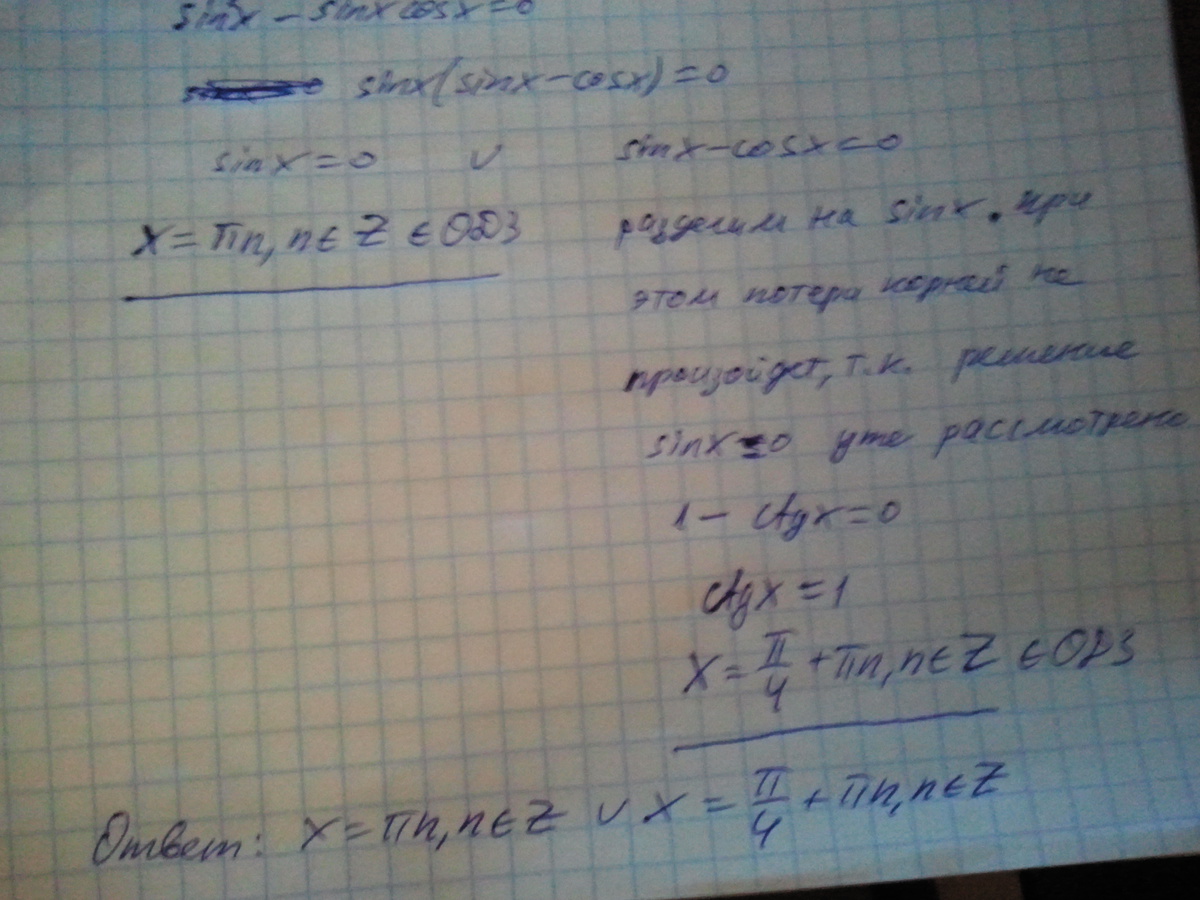 sin²x − sinx cosx = 0
sinx(sinx − cosx) = 0
sinx = 0 ∨ sinx − cosx = 0
x = πn, n ∈ Z ∈ ОДЗ
разделим на sinx. при
этом потери корней не
произойдет, т.к. решение
sinx = 0 уже рассмотрено
1 − ctgx = 0
ctgx = 1
x = π/4 + πn, n ∈ Z ∈ ОДЗ
Ответ: x = πn, n ∈ Z ∨ x = π/4 + πn, n ∈ Z